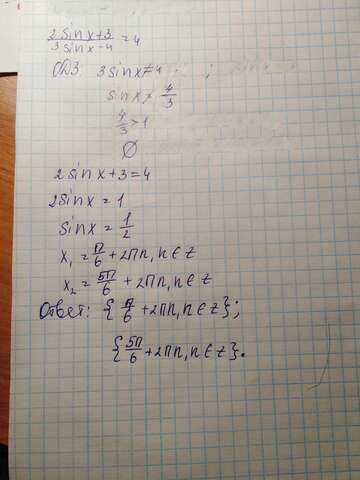 2sinx+3 / 3sinx-4 = 4
ОДЗ. 3sinx≠4 ;
sinx≠ 4/3
4/3 > 1
∅
2sinx+3=4
2sinx=1
sinx = 1/2
x₁ = π/6 + 2πn, n∈z
x₂ = 5π/6 + 2πn, n∈z
Ответ: {π/6 + 2πn, n∈z};
{5π/6 + 2πn, n∈z}.